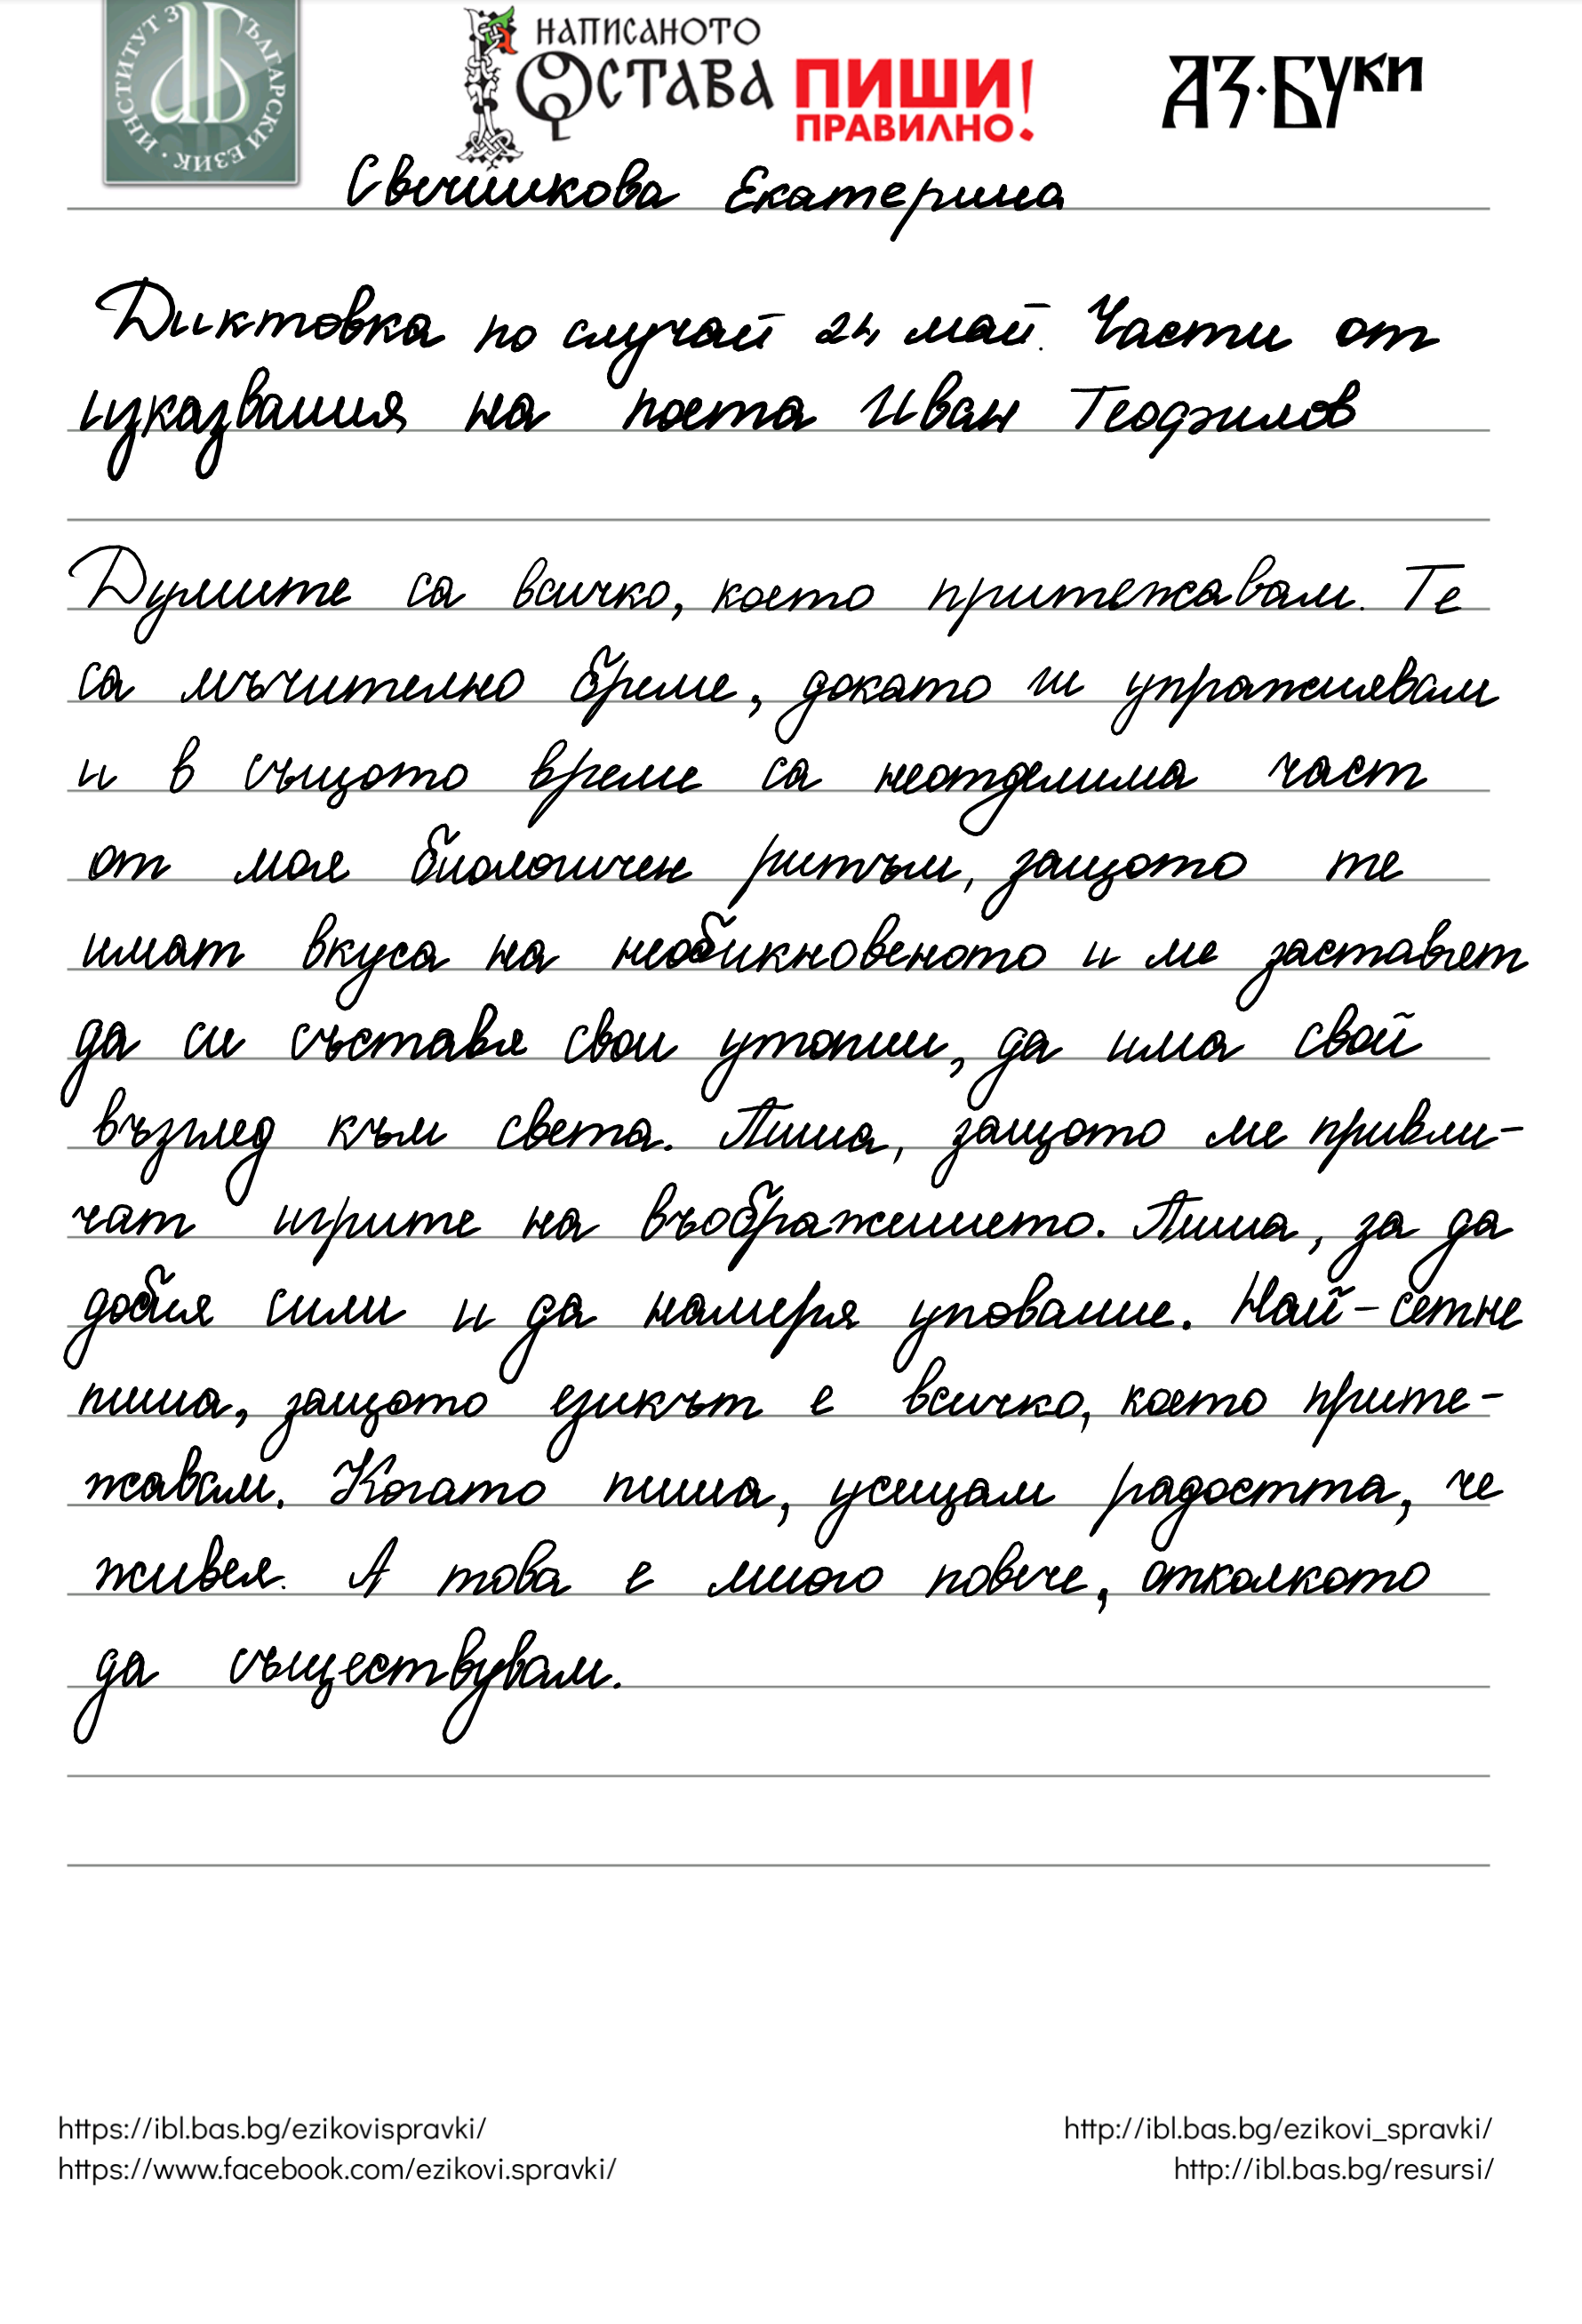 ИНСТИТУТ ЗА БЪЛГАРСКИ ЕЗИК
НАПИСАНОТО
ОСТАВА ПИШИ!
ПРАВИЛНО!
АЗ·БУКИ
Свечникова Екатерина
Диктовка по случай 24 май. Части от
изказвания на поета Иван Теофилов
Думите са всичко, което притежавам. Те
са мъчително бреме, докато ги упражнявам
и в същото време са неотделима част
от моя биологичен ритъм, защото те
имат вкуса на необикновеното и ме заставят
да си съставя свои утопии, да има свой
възглед към света. Пиша, защото ме привли-
чат игрите на въображението. Пиша, за да
добия сили и да намеря упование. Най-сетне
пиша, защото езикът е всичко, което прите-
жавам. Когато пиша, усещам радостта, че
живея. А това е много повече, отколкото
да съществувам.
https://ibl.bas.bg/ezikovispravki/ http://ibl.bas.bg/ezikovi_spravki/
https://www.facebook.com/ezikovi.spravki/ http://ibl.bas.bg/resursi/